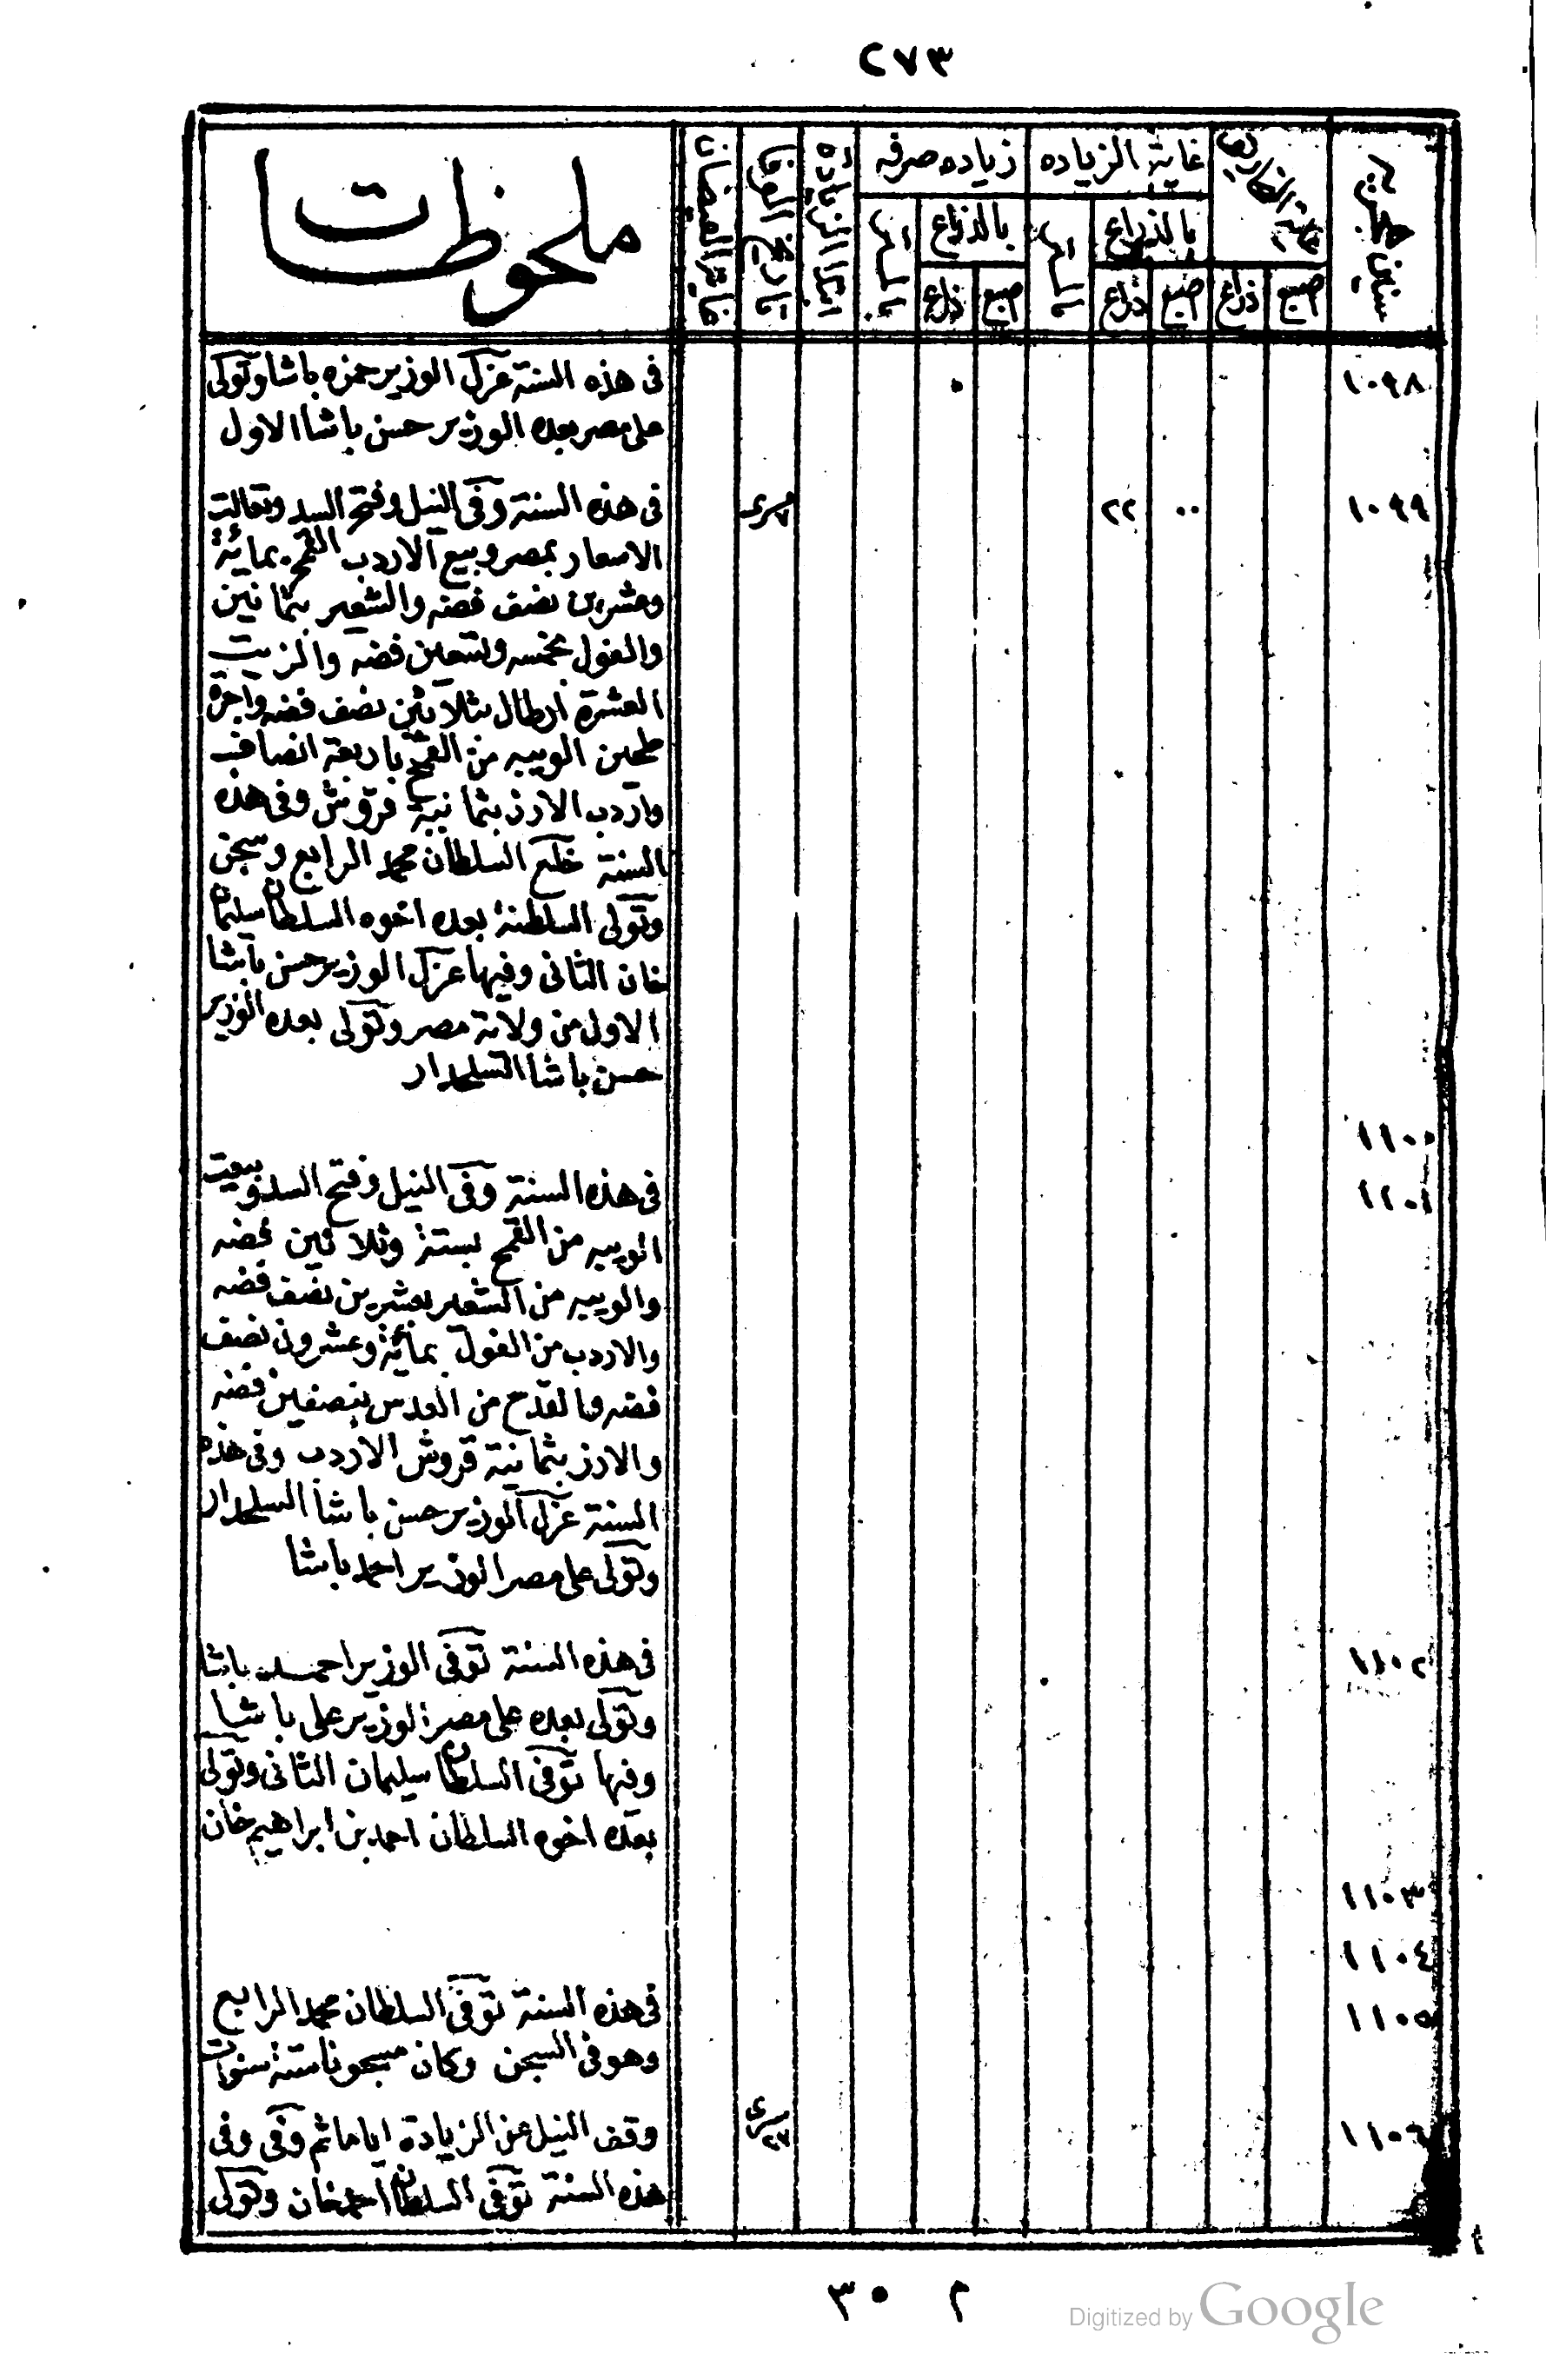 ٢٧٣
سنين هجرية
غاية الزياده
زياده صرفه
ابتدا الزيادة
تاريخ الوفا
غاية الفيضان
ملحوظات
بالذراع
بالذراع
اصبع
ذراع
اصبع
ذراع
اصبع
ذراع
١٠٩٨
فى هذه السنة عزل الوزير حمزه باشا وتولى
على مصر بعده الوزير حسن باشا الاول
١٠٩٩
٠٠
٢٢
٧ مسرى
فى هذه السنة وفى النيل وفتح السد وتعالت
الاسعار بمصر وبيع الاردب القمح بمائة
وعشرين نصف فضه والشعير بثمانين
والفول بخمسه وتسعين فضه والزيت
العشرة ارطال بثلاثين نصف فضه واجرة
طحين الويبه من القمح باربعة انصاف
واردب الارز بثمانية قروش وفى هذه
السنة خلع السلطان محمد الرابع وسجن
وتولى السلطنة بعده اخوه السلطان سليمان
خان الثانى وفيها عزل الوزير حسن باشا
الاول من ولاية مصر وتولى بعده الوزير
حسن باشا السلحدار
١١٠٠
١١٠١
فى هذه السنة وفى النيل وفتح السد وبيعت
الويبه من القمح بستة وثلاثين فضه
والويبه من الشعير بعشرين نصف فضه
والاردب من الفول بمائة وعشرون نصف
فضه والقدح من العدس بنصفين فضه
والارز بثمانية قروش الاردب وفى هذه
السنة عزل الوزير حسن باشا السلحدار
وتولى على مصر الوزير احمد باشا
١١٠٢
فى هذه السنة توفى الوزير احمد باشا
وتولى بعده على مصر الوزير على باشا
وفيها توفى السلطان سليمان الثانى وتولى
بعده اخوه السلطان احمد بن ابراهيم خان
١١٠٣
١١٠٤
١١٠٥
فى هذه السنة توفى السلطان محمد الرابع
وهو فى السجن وكان مسجونا ستة سنوات
١١٠٦
٢٧ مسرى
وقف النيل عن الزيادة اياما ثم وفى وفى
هذه السنة توفى السلطان احمد خان وتولى
٣٥ م
Digitized by Google